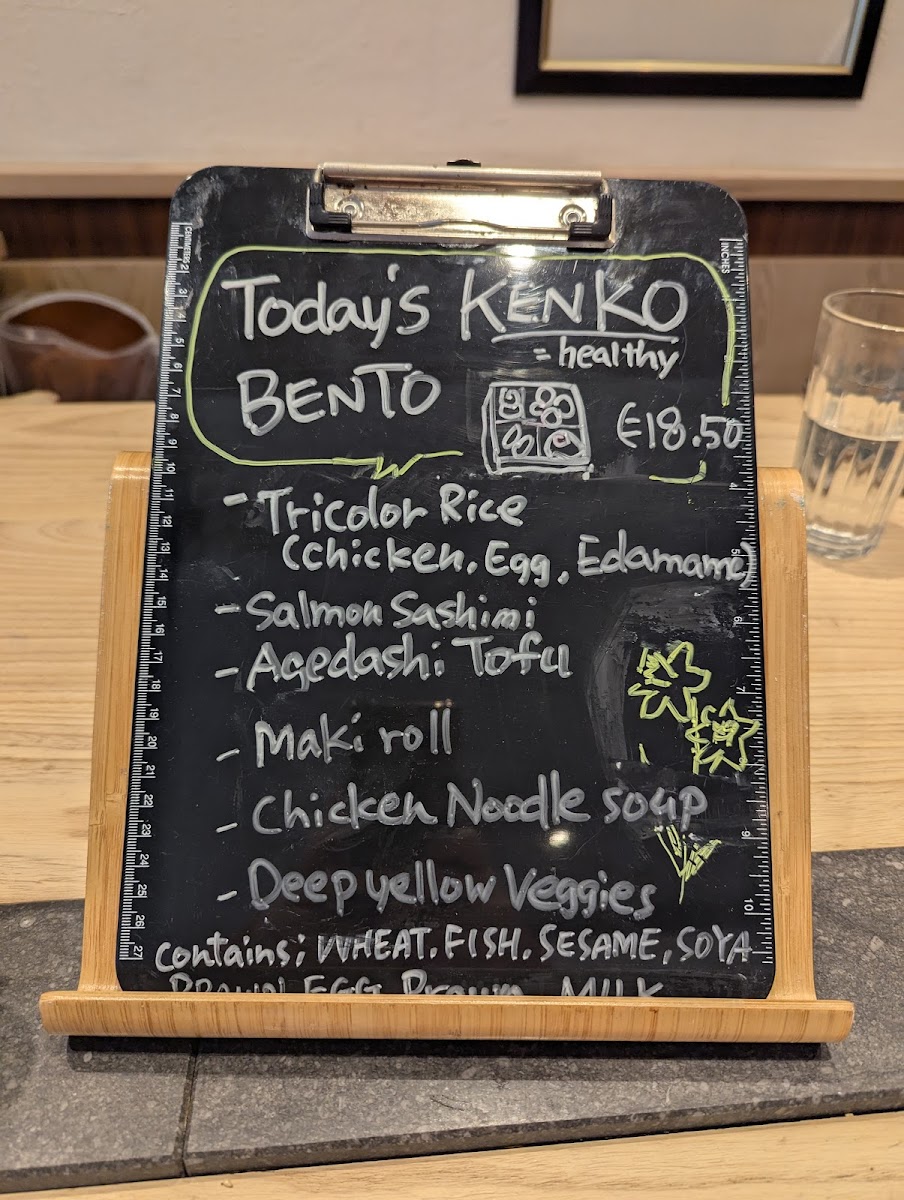 Today's KENKO
= healthy
BENTO
€18.50
- Tricolor Rice
(Chicken, Egg, Edamame)
- Salmon Sashimi
- Agedashi Tofu
- Maki roll
- Chicken Noodle soup
- Deep yellow Veggies
contains; WHEAT, FISH, SESAME, SOYA
EGG MILK
CENTIMETERS
2 3 4 5 6 7 8 9 10 11 12 13 14 15 16 17 18 19 20 21 22 23 24 25 26 27
INCHES
4 5 6 7 9 10